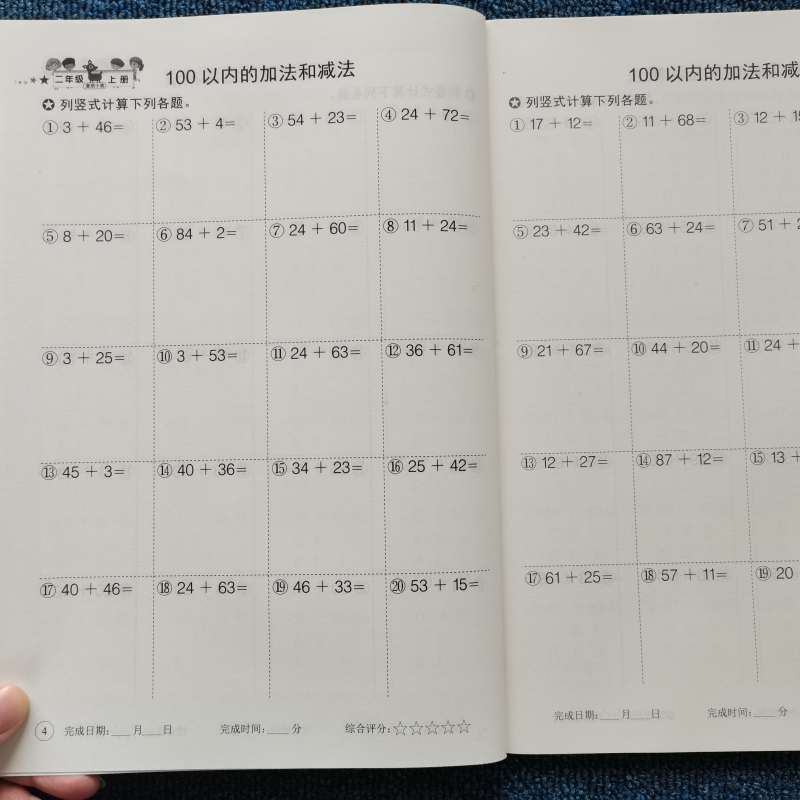 二年级 上册
100 以内的加法和减法
✪ 列竖式计算下列各题。
① 3 + 46= ② 53 + 4= ③ 54 + 23= ④ 24 + 72=
⑤ 8 + 20= ⑥ 84 + 2= ⑦ 24 + 60= ⑧ 11 + 24=
⑨ 3 + 25= ⑩ 3 + 53= ⑪ 24 + 63= ⑫ 36 + 61=
⑬ 45 + 3= ⑭ 40 + 36= ⑮ 34 + 23= ⑯ 25 + 42=
⑰ 40 + 46= ⑱ 24 + 63= ⑲ 46 + 33= ⑳ 53 + 15=
4 完成日期:___月___日 完成时间:____分 综合评分:☆☆☆☆☆
100 以内的加法和减
✪ 列竖式计算下列各题。
① 17 + 12= ② 11 + 68= ③ 12 + 1
⑤ 23 + 42= ⑥ 63 + 24= ⑦ 51 +
⑨ 21 + 67= ⑩ 44 + 20= ⑪ 24 +
⑬ 12 + 27= ⑭ 87 + 12= ⑮ 13 +
⑰ 61 + 25= ⑱ 57 + 11= ⑲ 20
完成日期:___月___日 完成时间:____分